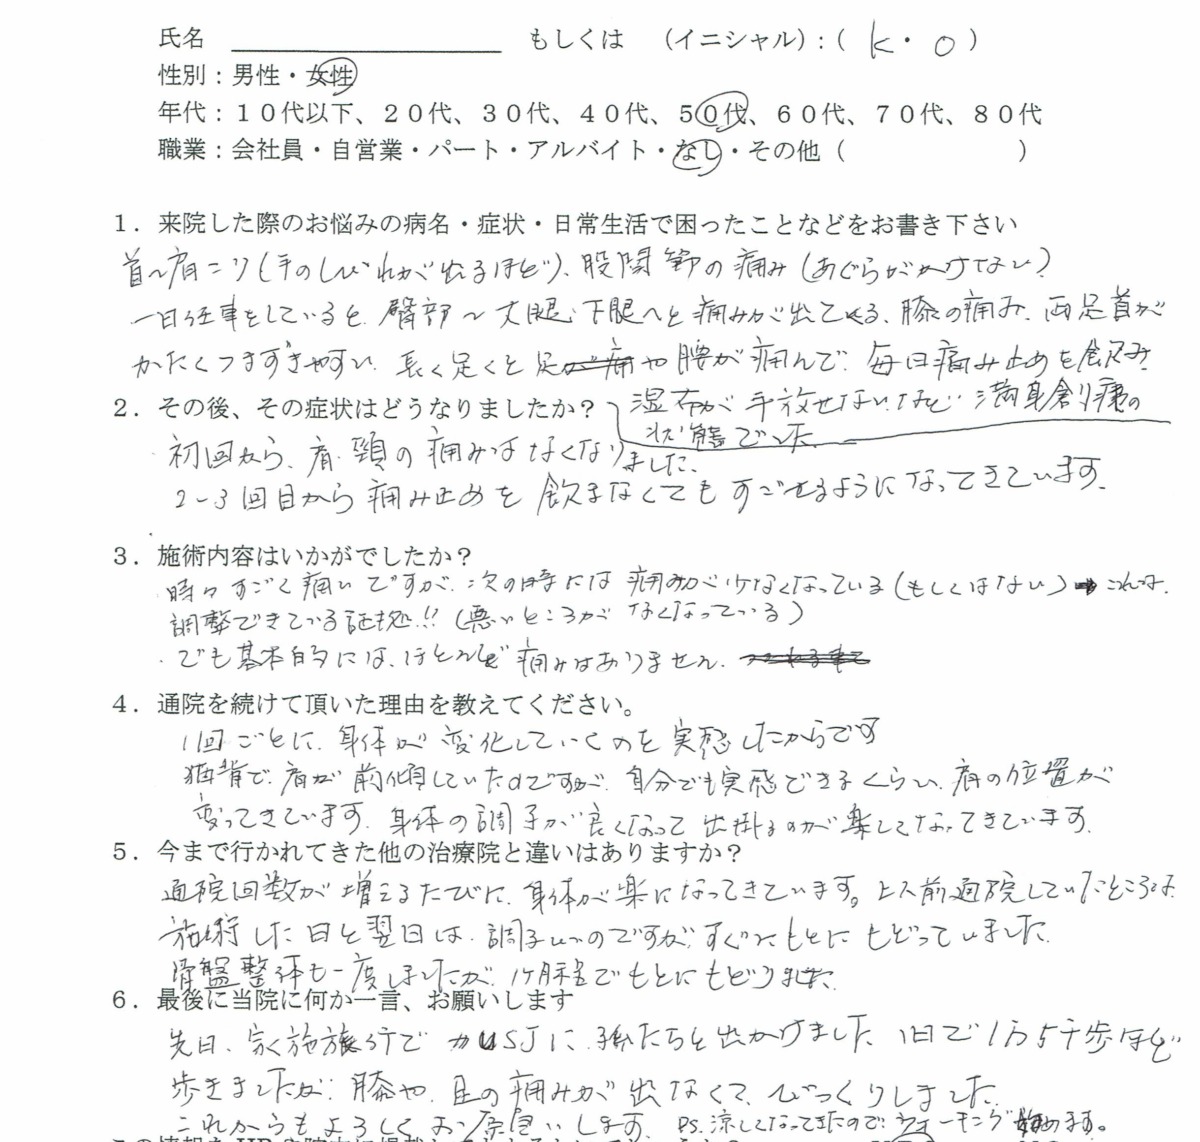 氏名　　　　　　　もしくは　（イニシャル）：（ K・O ）
性別：男性・女性
年代：１０代以下、２０代、３０代、４０代、５０代、６０代、７０代、８０代
職業：会社員・自営業・パート・アルバイト・なし・その他（　　　　　　　）
１．来院した際のお悩みの病名・症状・日常生活で困ったことなどをお書き下さい
首〜肩こり（手のしびれが出るほど）、股関節の痛み（あぐらがかけない）
一日仕事をしていると、臀部〜大腿、下腿へと痛みが出てくる、膝の痛み、両足首が
かたくつまずきやすい、長く歩くと足や腰が痛んで、毎日痛み止めを飲み、
湿布が手放せないなど満身創痍の
状態でした。
２．その後、その症状はどうなりましたか？
初回から、肩、頸の痛みはなくなりました。
２〜３回目から痛み止めを飲まなくてもすごせるようになってきています。
３．施術内容はいかがでしたか？
時々すごく痛いですが、次の時には痛みが少なくなっている（もしくはない）→これは、
調整できている証拠!!（悪いところがなくなっている）
・でも基本的には、ほとんど痛みはありません。
４．通院を続けて頂いた理由を教えてください。
１回ごとに、身体が変化していくのを実感したからです
猫背で、肩が前傾していたのですが、自分でも実感できるくらい、肩の位置が
変ってきています。身体の調子が良くなって出掛るのが楽しくなってきています。
５．今まで行かれてきた他の治療院と違いはありますか？
通院回数が増えるたびに、身体が楽になってきています。以前通院していたところは
施術した日と翌日は、調子いいのですが、すぐにもとにもどっていました。
骨盤整体も一度しましたが、１ヶ月程でもとにもどりました。
６．最後に当院に何か一言、お願いします
先日、家族旅行でUSJに孫たちと出かけました。１日で１万５千歩ほど
歩きましたが、膝や、足の痛みが出なくて、びっくりしました。
これからもよろしくお願いします。PS.涼しくなってきたので、ウォーキング始めます。